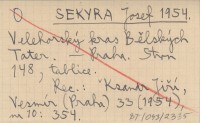 O SEKYRA Josef 1954.
Velehorský kras Bělských
Tater. - Praha. Stran
148, tablice.
Rec.: Ksandr Jiří,
Vesmír (Praha) 33 (1954),
no 10: 354.